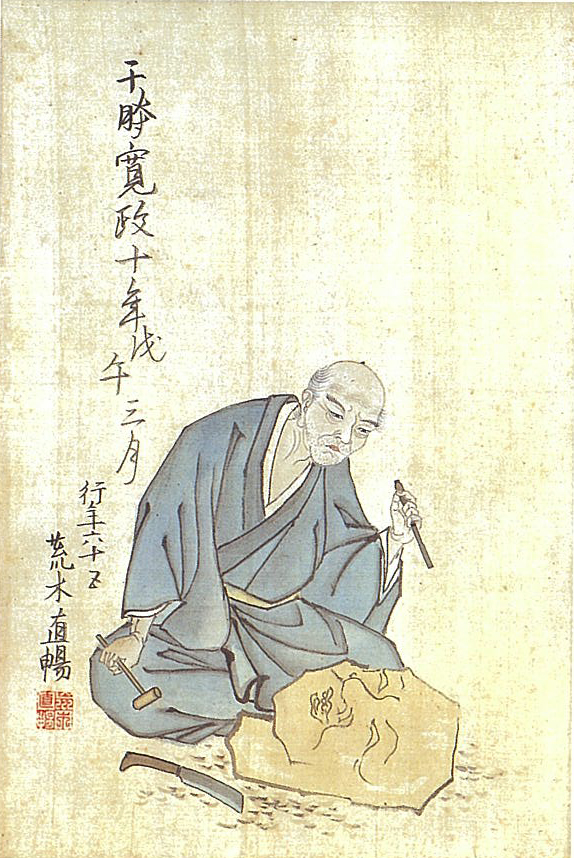 于時寛政十年戊午三月
行年六十五
荒木直暢